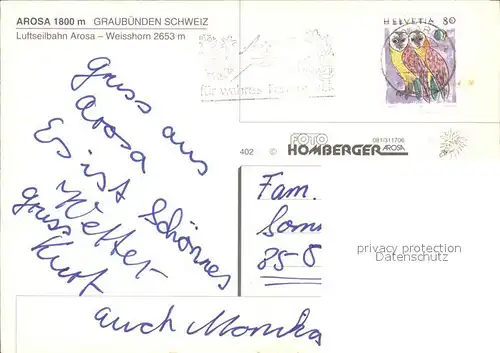 AROSA 1800 m GRAUBÜNDEN SCHWEIZ
Luftseilbahn Arosa – Weisshorn 2653 m
HELVETIA 80
für wahres
402 © FOTO HOMBERGER AROSA
081/311706
gruss aus
Arosa
Es ist Schönnes
Wetter
gruss
Kurt
auch Monika
Fam.
Som
85-8
privacy protection
Datenschutz